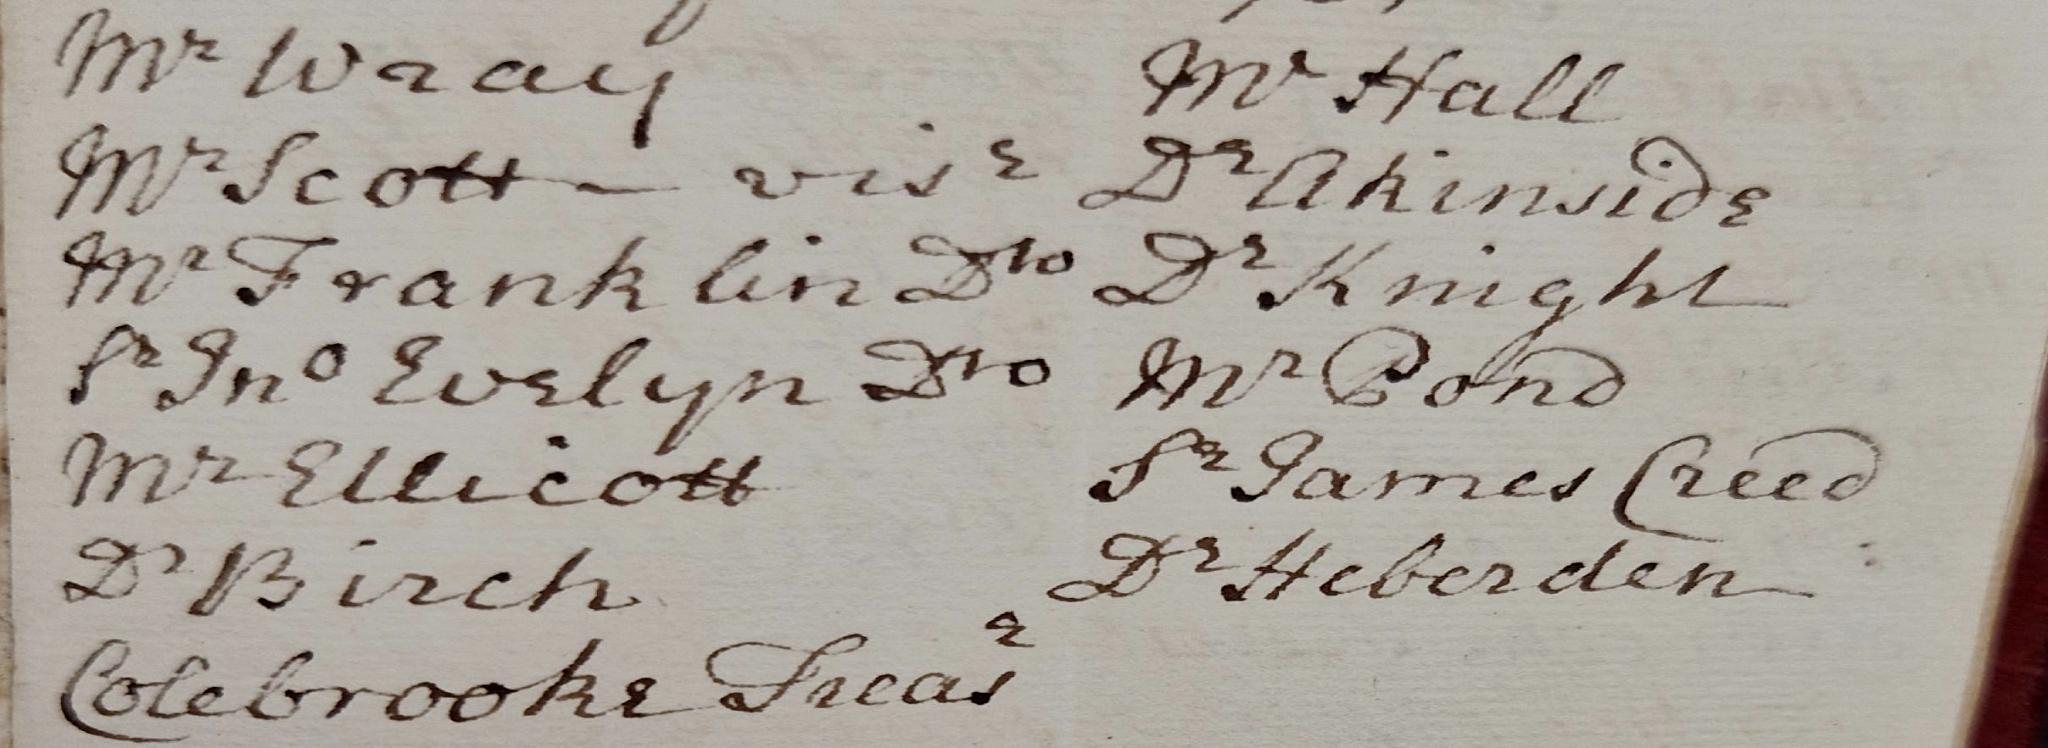 Mr Wray
Mr Scott — visr
Mr Franklin Dto
Sr Jno Evelyn Dto
Mr Ellicott
Dr Birch
Colebrooke Treasr
Mr Hall
Dr Akinside
Dr Knight
Mr Pond
Sr James Creed
Dr Heberden